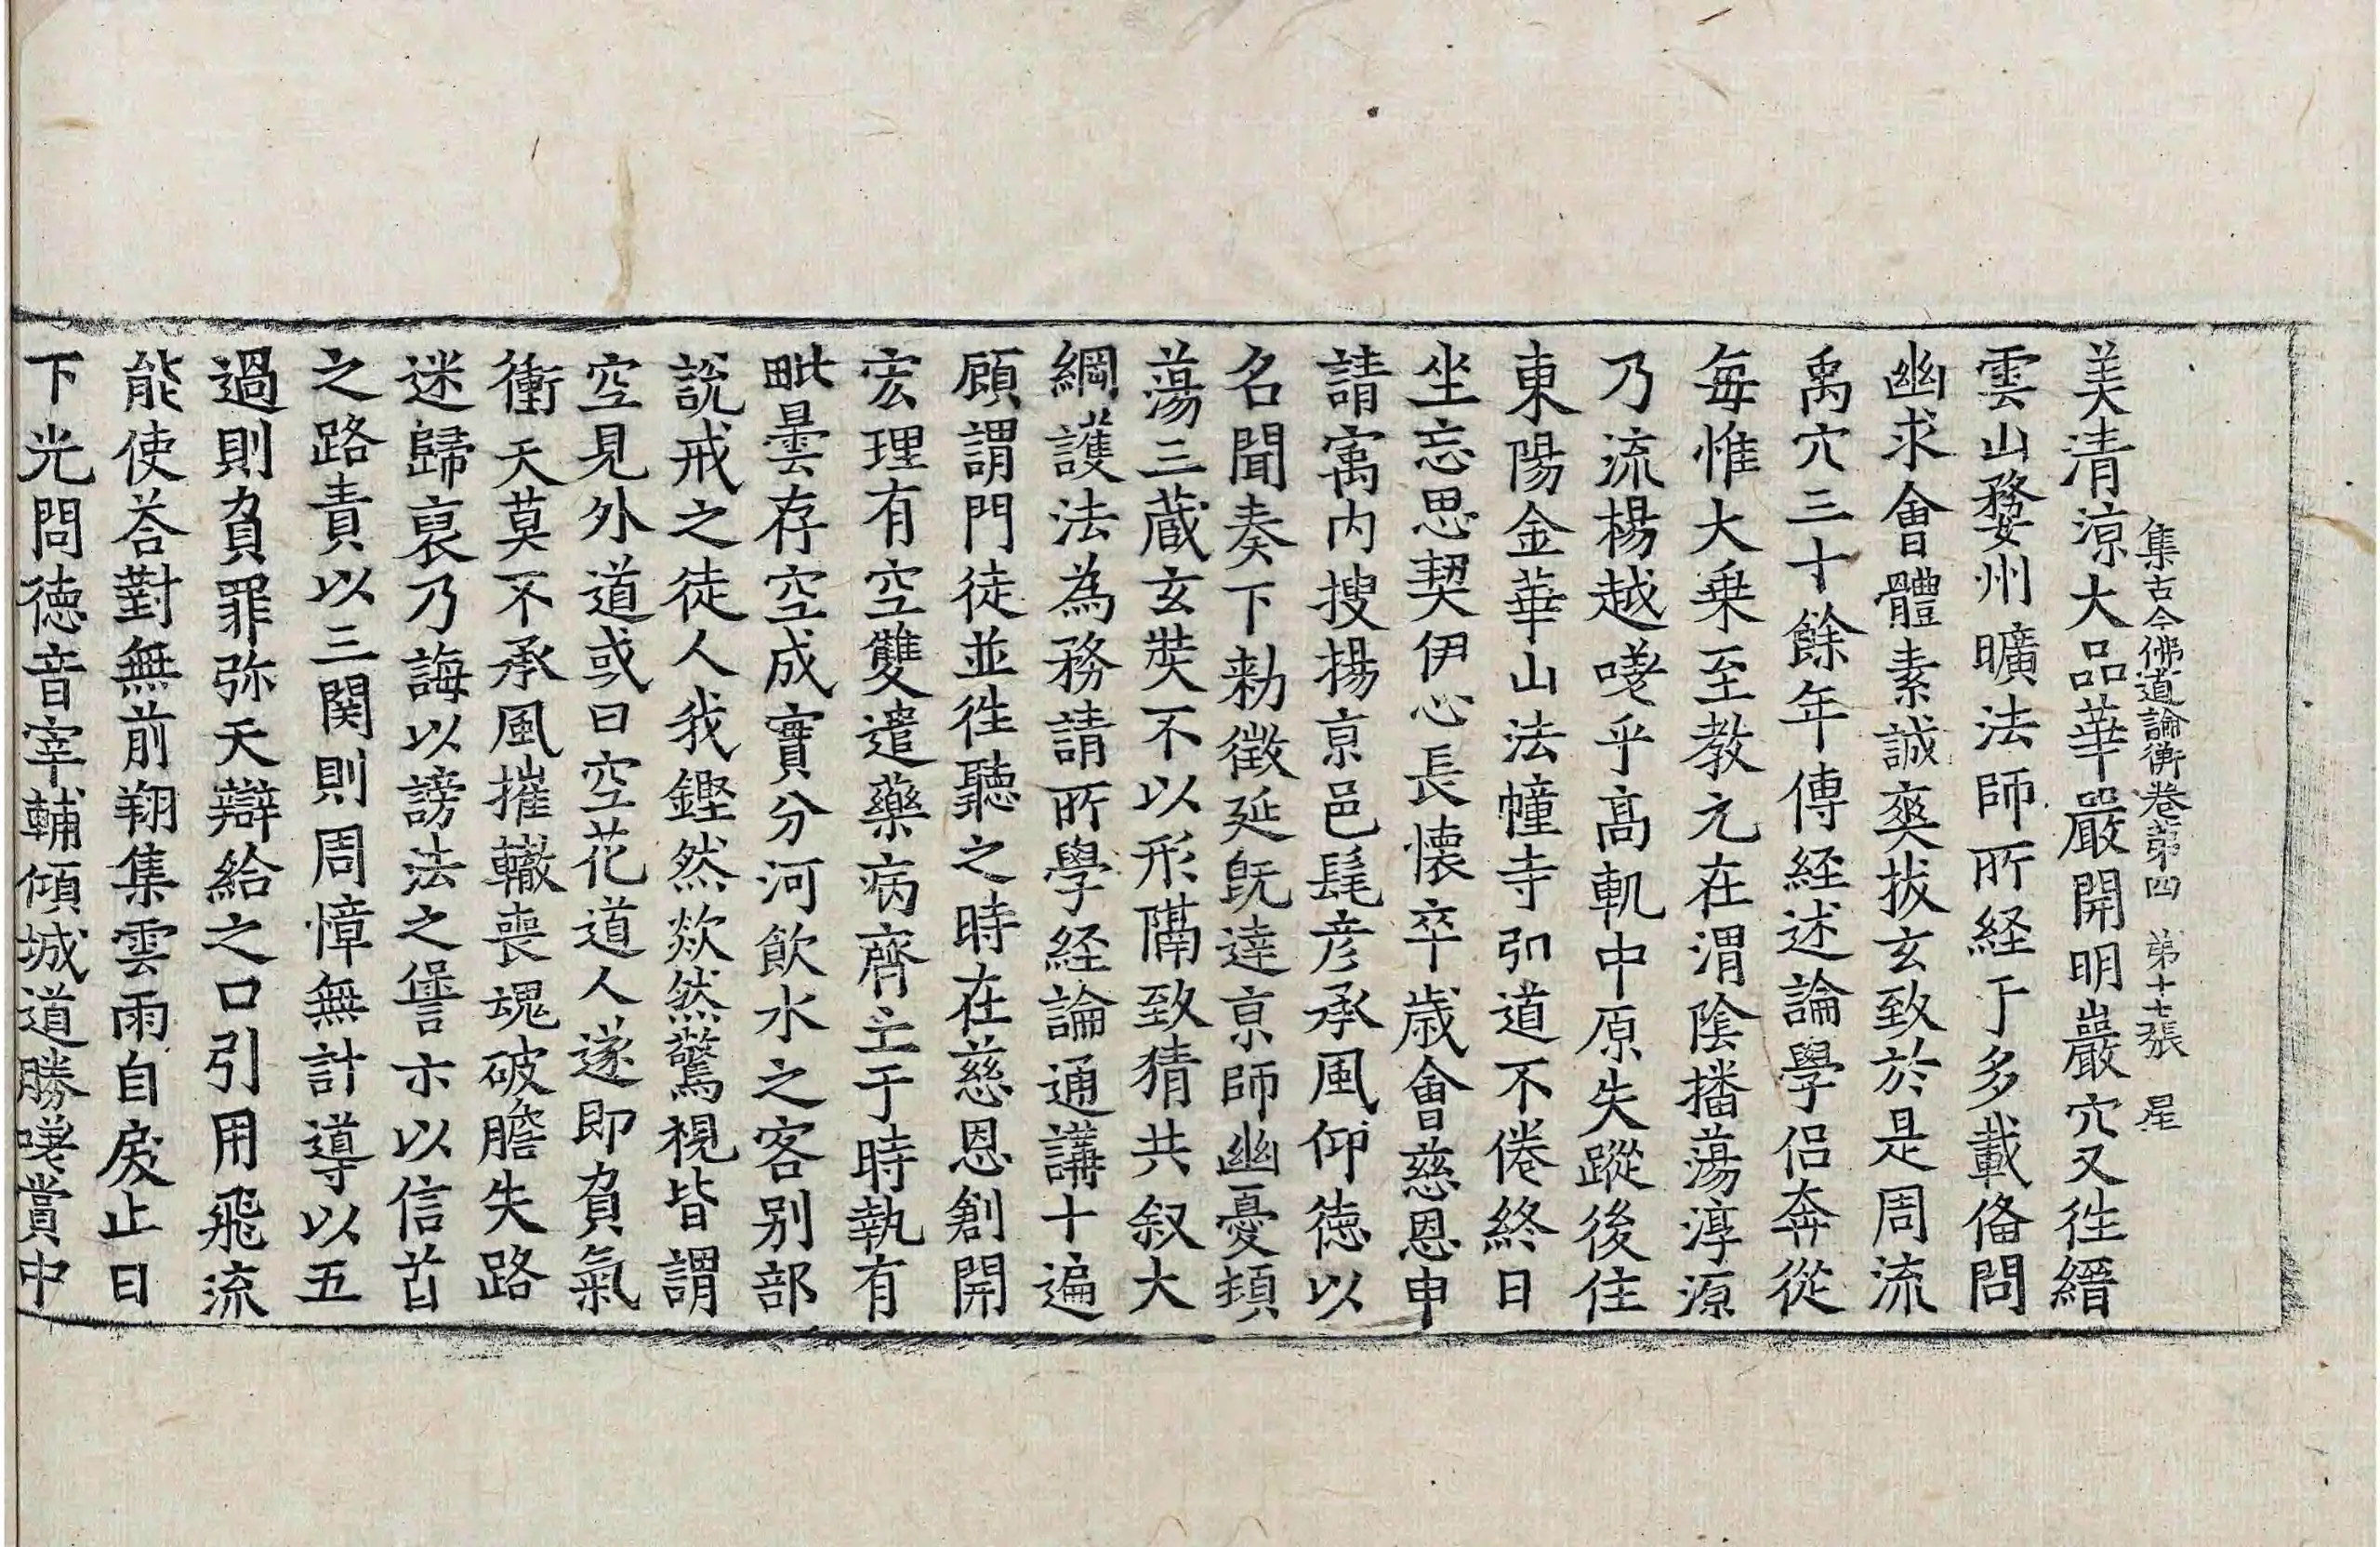 集古今佛道論衡卷第四　第十七張　星
美清涼大品華嚴開明巖穴又往縉
雲山婺州曠法師所経于多載俻問
幽求會體素誠奭拔玄致於是周流
禹穴三十餘年傳経述論學侣奔從
每惟大乗至教元在渭隂播蕩淳源
乃流楊越嘆乎髙軌中原失蹤後住
東陽金華山法幢寺弘道不倦終日
坐忘思契伊心長懷卒歳會慈恩申
請㝢内搜揚亰邑髦彦承風仰徳以
名聞奏下勑徵延旣達亰師幽憂頓
蕩三蔵玄奘不以形隔致猜共叙大
綱護法為務請所學経論通講十遍
顧謂門徒並往聽之時在慈恩創開
宏理有空雙遣藥病齊亡于時執有
毗曇存空成實分河飲水之客别部
說戒之徒人我鏗然欻然驚視皆謂
空見外道或曰空花道人遂即負氣
衝天莫不承風摧轍喪魂破膽失路
迷歸裒乃誨以謗法之𠎝亦以信首
之路責以三関則周慞無計導以五
過則負罪弥天辯給之口引用飛流
能使荅對無前翔集雲雨自戾止日
下光問徳音宰輔傾城道勝嘆賞中